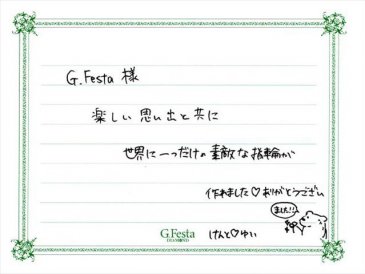 G.Festa 様
楽しい思い出と共に
世界に一つだけの素敵な指輪が
作れました♡ありがとうござい
ました!!
G.Festa
DIAMOND
けんと♡ゆい